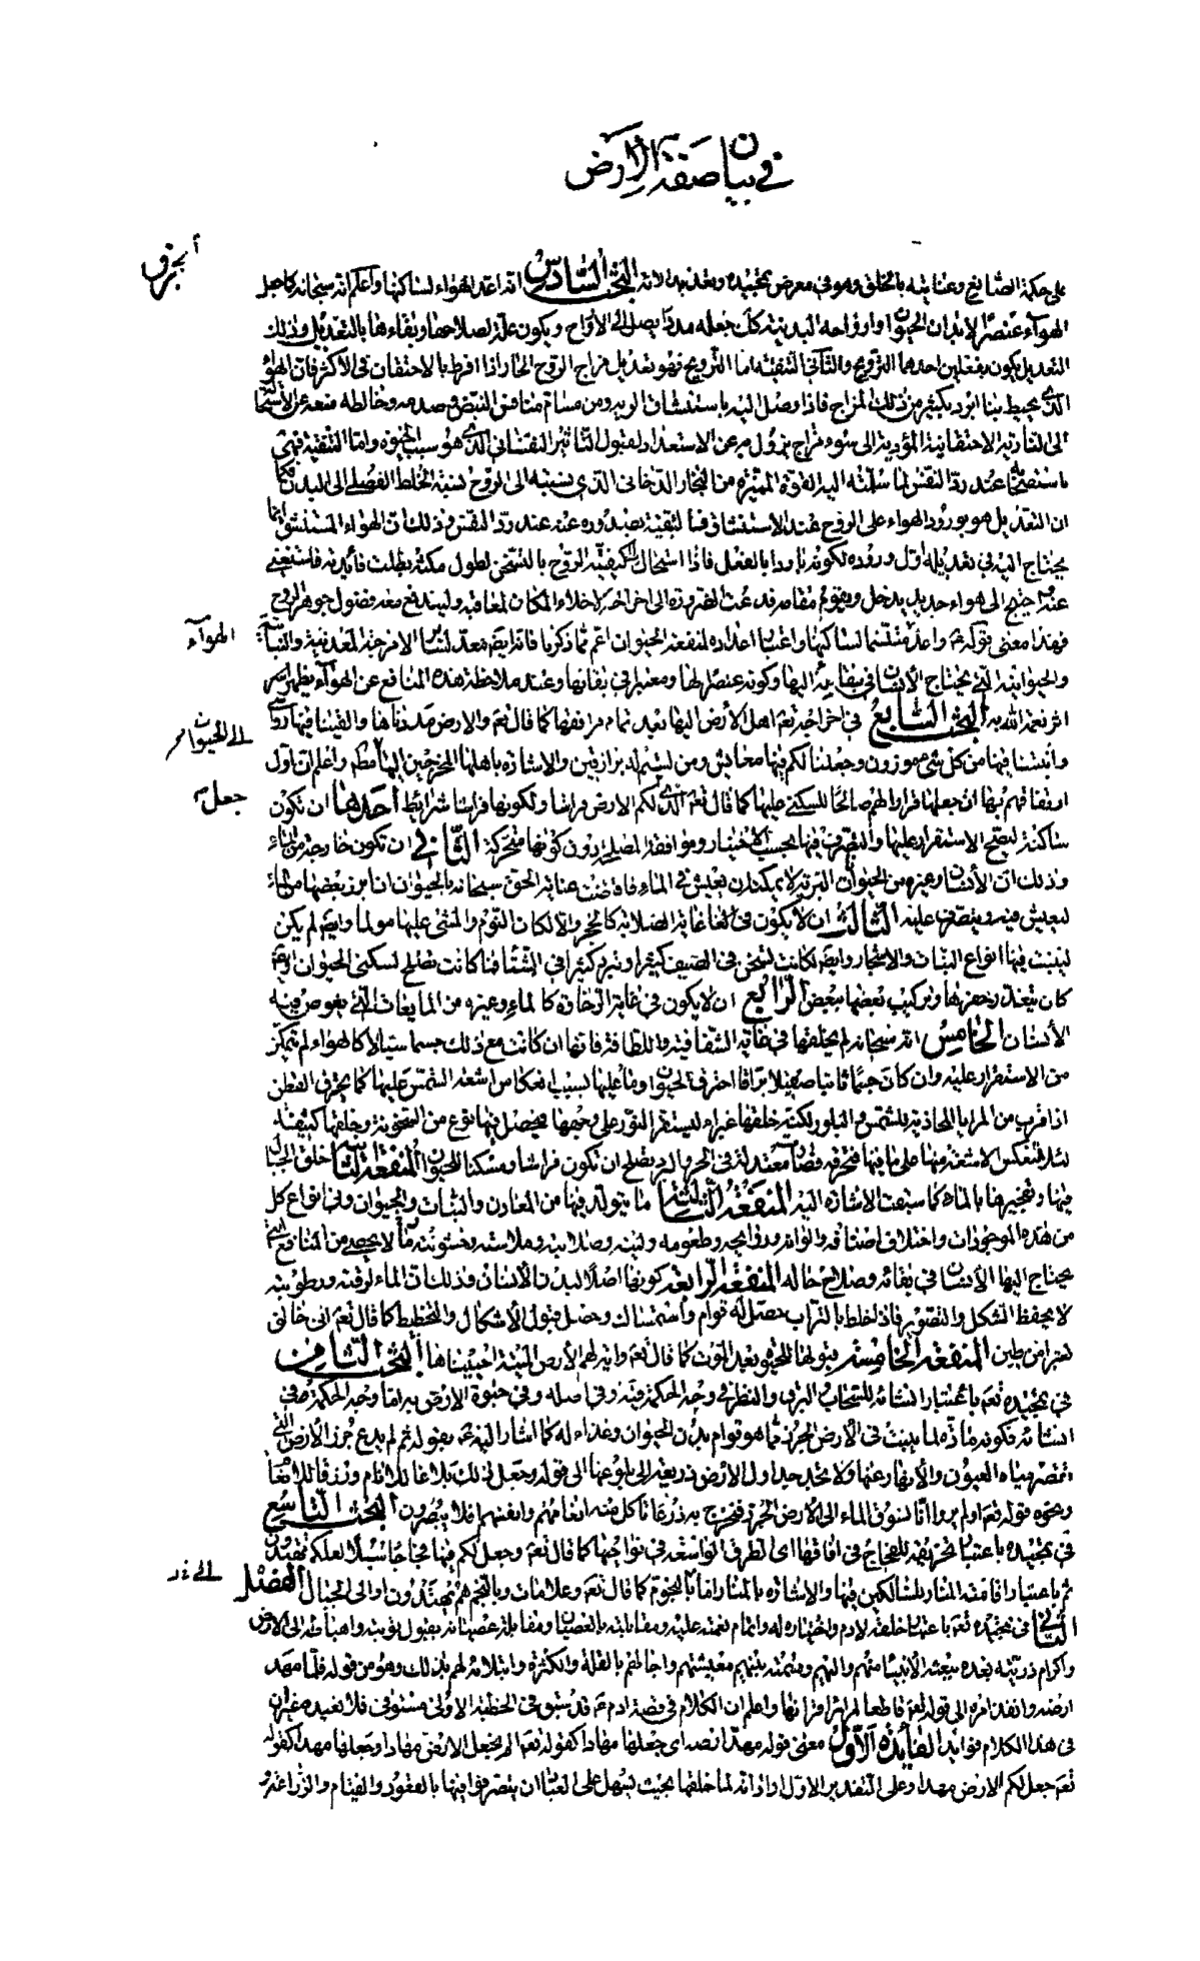 في بيان صفة الأرض
على حكمة الصانع وعنايته بالخلق وهو في معرض تمجيده وتعديد آلائه البحث السادس انه اعد الهواء لساكنها واعلم انه سبحانه كما جعل
الهوآء عنصرا لابدان الحيوان وارواحه البدنية كك جعله مددا يصل الى الأرواح ويكون علة لصلاحها وبقاءها بالتعديل وذلك
التعديل يكون بفعلين احدهما الترويح والثاني التنقية اما الترويح فهو تعديل مزاج الروح الحار اذا افرط بالاحتقان في الأكثر فان الهواء
الذي يحيط بنا ابرد بكثير من ذلك المزاج فاذا وصل اليه باستنشاق الرية ومن مسام منافس النبض وصدمه وخالطه منعه عن الاستحالة
الى النارية الاحتقانية المؤدية الى سوء مزاج يزول به عن الاستعداد لقبول التأثير النفساني الذي هو سبب الحيوة واما التنقية فهي
باستصحابه عند رد النفس لما سلمته اليه القوة المميزة من البخار الدخاني الذي نسبته الى الروح نسبة الخلط الفضلى الى البدن فكما
ان التعديل هو بورود الهواء على الروح عند الاستنشاق فالتنقية بصدوره عنه عند رد النفس وذلك ان الهواء المستنشق انما
يحتاج اليه في تعديله اول وروده لكونه باردا بالفعل فاذا استحال الى كيفية الروح بالتسخن لطول مكثه بطلت فائدته فاستغنى
عنه واحتيج الى هواء جديد يدخل ويقوم مقامه فدعت الضرورة الى اخراجه لاخلاء المكان لمعاقبه وليندفع معه فضول جوهر الروح
فهذا معنى قوله ع واعد الهوآء متنسما لساكنها واعتبار اعداده لمنفعة الحيوان اعم مما ذكرنا فانه ايضا معد لساير الامزجة المعدنية والنباتية
والحيوانية التي يحتاج الأنسان في بقائه اليها وكونه عنصرا لها ومعتبرا في بقائها وعند ملاحظة هذه المنافع عن الهوآء يظهر اسر
اثر نعمة الله به البحث السابع في اخراجه تعم اهل الأرض اليها بعد تمام مرافقها كما قال تعم والارض مددناها والقينا فيها رواسي
وانبتنا فيها من كل شئ موزون وجعلنا لكم فيها معايش ومن لستم له برازقين والاشارة باهلها المخرجين اليها مطلقا واعلم ان اول
ارتفاقهم بها ان جعلها قرارا لهم صالحا للسكنى عليها كما قال تعم الذي جعل لكم الارض فراشا ولكونها فراشا شرائط احدها ان تكون
ساكنة ليصح الاستقرار عليها والتصرف فيها بحسب الاختيار وموافقة المصلحة دون كونها متحركة الثاني ان تكون خارجة من الماء
وذلك ان الأنسان وغيره من الحيوان البرية لا يمكنه ان يعيش في الماء فاقتضت عناية الحق سبحانه بالحيوان ان ابرز بعضها من الماء
ليعيش فيه ويتصرف عليه الثالث ان لا يكون في غاية الصلابة كالحجر والا لكان النوم والمشى عليها مولما وايضا لم يكن
لينبت فيها انواع النبات والاشجار وايضا لكانت تسخن في الصيف كثيرا وتبرد كثيرا في الشتاء فما كانت تصلح لسكنى الحيوان وايضا
كان يتعذر حفرها وتركيب بعضها ببعض الرابع ان لا يكون في غاية الرخاوة كالماء وغيره من المايعات التي يغوص فيه
الأنسان الخامس انه سبحانه لم يخلقها في غاية الشفافية واللطافة فانها ان كانت مع ذلك جسما سيالا كالهواء لم نتمكن
من الاستقرار عليه وان كان جسما ثابتا صقيلا براقا احترق الحيوان وما عليها بسبب انعكاس اشعة الشمس عليها كما يحرق القطن
اذا قرب من المرايا المحاذية للشمس والبلور لكنه خلقها غبراء ليستقر النور على وجهها فيحصل فيها نوع من السخونة وخلقها كثيفة
لئلا تنعكس الاشعة منها على ما فيها فتحرقه فصارت معتدلة في الحر والبرد تصلح ان تكون فراشا ومسكنا للحيوان المنفعة الثانية خلق الجبال
فيها وتفجيرها بالماء كما سبقت الاشارة اليه المنفعة الثالثة ما يتولد فيها من المعادن والنبات والحيوان وفي انواع كل
من هذه الموجودات واختلاف اصنافه والوانه وروايحه وطعومه ولينه وصلابته وملاسته وخشونته ما لا يحصى من المنافع التي
يحتاج اليها الأنسان في بقائه وصلاح حاله المنفعة الرابعة كونها اصلا لبدن الأنسان وذلك ان الماء لرقته ورطوبته
لا يحفظ الشكل والتصوير فاذا خلط بالتراب حصل له قوام واستمساك وحصل قبول الأشكال والتخطيط كما قال تعم اني خالق
بشرا من طين المنفعة الخامسة قبولها للحيوة بعد الموت كما قال تعم واية لهم الأرض الميتة احييناها البحث الثامن
في تمجيده تعم باعتبار انشائه للسحاب البرق والنظر في وجه الحكمة فيه وفي اصله وفي حيوة الارض به اما وجه الحكمة في
انشائه فكونه مادة لما ينبت في الأرض الجرز مما هو قوام بدن الحيوان وغذاء له كما اشار اليه ع بقوله ثم لم يدع جرز الأرض التي
تقصر مياه العيون والأنهار عنها ولا تجد جداول الارض ذريعة الى بلوغها الى قوله وجعل ذلك بلاغا للانام ورزقا للانعام
ونحوه قوله تعم اولم يروا انا نسوق الماء الى الأرض الجرز فنخرج به زرعا تأكل منه انعامهم وانفسهم افلا يبصرون البحث التاسع
في تمجيده باعتبار تخريقه للفجاج في افاقها اى الطرق الواسعة في نواحيها كما قال تعم وجعل لكم فيها فجاجا سبلا لعلكم تهتدون
ثم باعتبار اقامته المنار للسالكين فيها والاشارة بالمنار اما بالنجوم كما قال تعم وعلامات وبالنجم هم يهتدون او الى الجبال الفصل
الثاني في تمجيده تعم باعتبار خلقه لادم واختياره له واتمام نعمته عليه ومقابلته بالعصيان ومقابلة عصيانه بقبول توبته واهباطه الى الارض
واكرام ذريته بعده ببعثه الأنبياء منهم واليهم وقسمته بينهم معيشتهم واجالهم بالقلة والكثرة وابتلائه لهم بذلك وهو من قوله فلما مهد
ارضه وانفذ امره الى قوله تعم قاطعا لمرائر اقرانها واعلم ان الكلام في قصة ادم ع قد سبق في الخطبة الاولى مستوفى فلا نعيده غير ان
في هذا الكلام فوائد الفائدة الأولى معنى قوله مهد ارضه اى جعلها مهادا كقوله تعم الم نجعل الارض مهادا وجعلها مهدا كقوله
تعم جعل لكم الارض مهدا وعلى التقدير الاول اراد انه لما خلقها بحيث يسهل على العباد ان يتصرفوا فيها بالقعود والقيام والزراعة
أبحرف
الهوآء
الى الحيوان
جعل